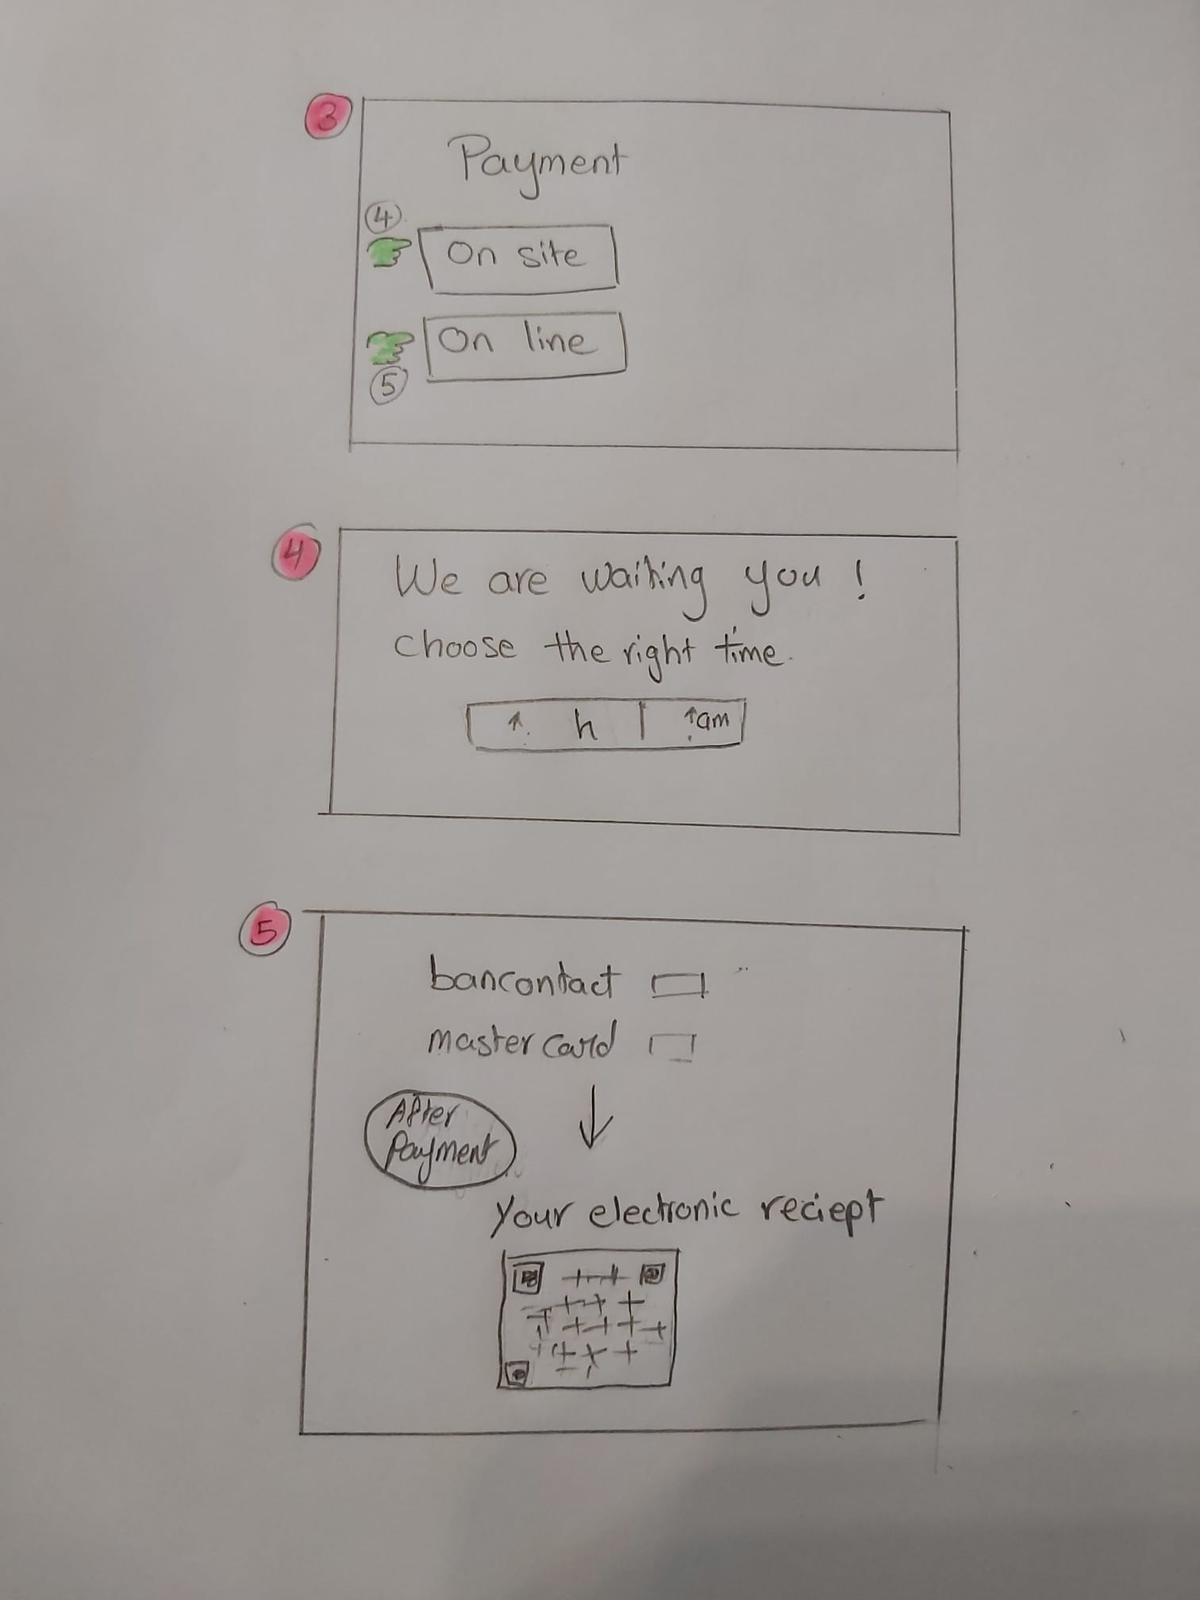 3
Payment
4
On site
On line
5
4
We are waiting you !
choose the right time.
h
am
5
bancontact
master card
After
Payment
Your electronic reciept